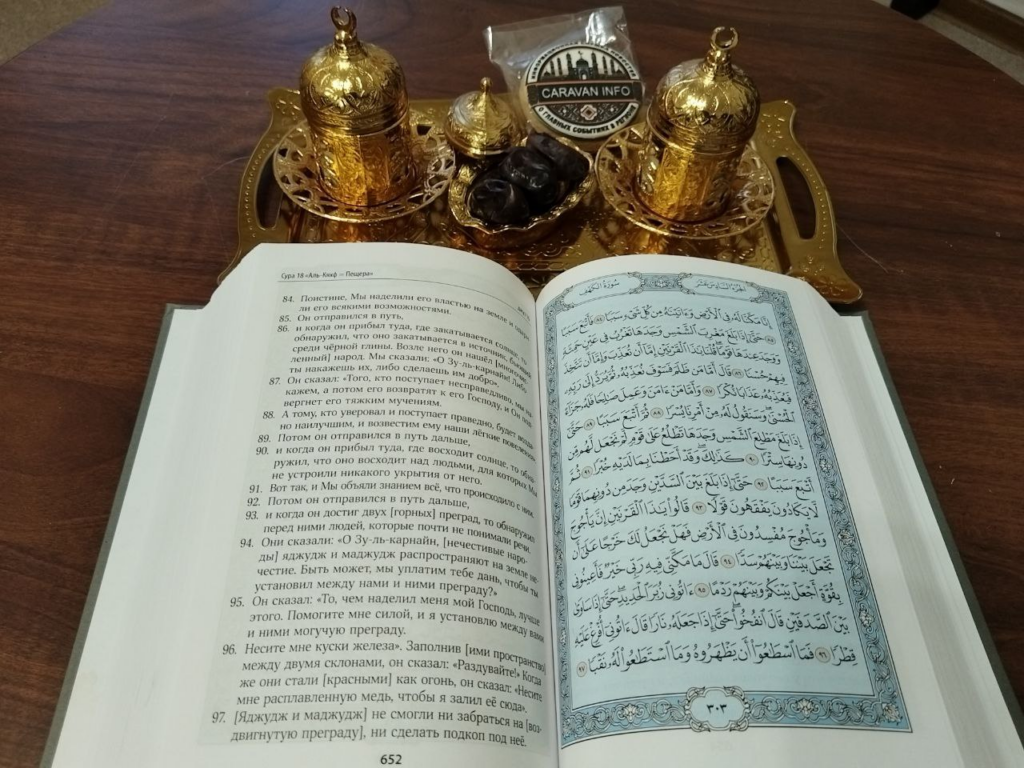 CARAVAN INFO
О ГЛАВНЫХ СОБЫТИЯХ В РЕГИОНЕ
Сура 18 «Аль-Кяхф — Пещера»
84. Поистине, Мы наделили его властью на земле и
ли его всякими возможностями.
85. Он отправился в путь,
86. и когда он прибыл туда, где закатывается солнце, то
обнаружил, что оно закатывается в источник, бьющий
среди чёрной глины. Возле него он нашёл [многочис-
ленный] народ. Мы сказали: «О Зу-ль-карнайн! Либо
ты накажешь их, либо сделаешь им добро».
87. Он сказал: «Того, кто поступает несправедливо, мы на-
кажем, а потом его возвратят к его Господу, и Он под-
вергнет его тяжким мучениям.
88. А тому, кто уверовал и поступает праведно, будет возда-
но наилучшим, и возвестим ему наши лёгкие повеления».
89. Потом он отправился в путь дальше,
90. и когда он прибыл туда, где восходит солнце, то обна-
ружил, что оно восходит над людьми, для которых Мы
не устроили никакого укрытия от него.
91. Вот так, и Мы объяли знанием всё, что происходило с ним.
92. Потом он отправился в путь дальше,
93. и когда он достиг двух [горных] преград, то обнаружил
перед ними людей, которые почти не понимали речи.
94. Они сказали: «О Зу-ль-карнайн, [нечестивые наро-
ды] яджудж и маджудж распространяют на земле не-
честие. Быть может, мы уплатим тебе дань, чтобы ты
установил между нами и ними преграду?»
95. Он сказал: «То, чем наделил меня мой Господь, лучше
этого. Помогите мне силой, и я установлю между вами
и ними могучую преграду.
96. Несите мне куски железа». Заполнив [ими пространство]
между двумя склонами, он сказал: «Раздувайте!» Когда
же они стали [красными] как огонь, он сказал: «Несите
мне расплавленную медь, чтобы я залил её сюда».
97. [Яджудж и маджудж] не смогли ни забраться на [воз-
двигнутую преграду], ни сделать подкоп под неё.
652
سُورَةُ الكَهْفِ
الجُزْءُ السَّادِسَ عَشَرَ
إِنَّا مَكَّنَّا لَهُۥ فِي ٱلۡأَرۡضِ وَءَاتَيۡنَٰهُ مِن كُلِّ شَيۡءٖ سَبَبٗا ٨٤ فَأَتۡبَعَ سَبَبًا
٨٥ حَتَّىٰٓ إِذَا بَلَغَ مَغۡرِبَ ٱلشَّمۡسِ وَجَدَهَا تَغۡرُبُ فِي عَيۡنٍ حَمِئَةٖ
وَوَجَدَ عِندَهَا قَوۡمٗاۖ قُلۡنَا يَٰذَا ٱلۡقَرۡنَيۡنِ إِمَّآ أَن تُعَذِّبَ وَإِمَّآ أَن تَتَّخِذَ
فِيهِمۡ حُسۡنٗا ٨٦ قَالَ أَمَّا مَن ظَلَمَ فَسَوۡفَ نُعَذِّبُهُۥ ثُمَّ يُرَدُّ إِلَىٰ رَبِّهِۦ
فَيُعَذِّبُهُۥ عَذَابٗا نُّكۡرٗا ٨٧ وَأَمَّا مَنۡ ءَامَنَ وَعَمِلَ صَٰلِحٗا فَلَهُۥ جَزَآءً
ٱلۡحُسۡنَىٰۖ وَسَنَقُولُ لَهُۥ مِنۡ أَمۡرِنَا يُسۡرٗا ٨٨ ثُمَّ أَتۡبَعَ سَبَبًا ٨٩ حَتَّىٰٓ
إِذَا بَلَغَ مَطۡلِعَ ٱلشَّمۡسِ وَجَدَهَا تَطۡلُعُ عَلَىٰ قَوۡمٖ لَّمۡ نَجۡعَل لَّهُم مِّن
دُونِهَا سِتۡرٗا ٩٠ كَذَٰلِكَۖ وَقَدۡ أَحَطۡنَا بِمَا لَدَيۡهِ خُبۡرٗا ٩١ ثُمَّ
أَتۡبَعَ سَبَبًا ٩٢ حَتَّىٰٓ إِذَا بَلَغَ بَيۡنَ ٱلسَّدَّيۡنِ وَجَدَ مِن دُونِهِمَا قَوۡمٗا
لَّا يَكَادُونَ يَفۡقَهُونَ قَوۡلٗا ٩٣ قَالُواْ يَٰذَا ٱلۡقَرۡنَيۡنِ إِنَّ يَأۡجُوجَ
وَمَأۡجُوجَ مُفۡسِدُونَ فِي ٱلۡأَرۡضِ فَهَلۡ نَجۡعَلُ لَكَ خَرۡجًا عَلَىٰٓ أَن
تَجۡعَلَ بَيۡنَنَا وَبَيۡنَهُمۡ سَدّٗا ٩٤ قَالَ مَا مَكَّنِّي فِيهِ رَبِّي خَيۡرٞ فَأَعِينُونِي
بِقُوَّةٍ أَجۡعَلۡ بَيۡنَكُمۡ وَبَيۡنَهُمۡ رَدۡمًا ٩٥ ءَاتُونِي زُبَرَ ٱلۡحَدِيدِۖ حَتَّىٰٓ إِذَا سَاوَىٰ
بَيۡنَ ٱلصَّدَفَيۡنِ قَالَ ٱنفُخُواْۖ حَتَّىٰٓ إِذَا جَعَلَهُۥ نَارٗا قَالَ ءَاتُونِيٓ أُفۡرِغۡ عَلَيۡهِ
قِطۡرٗا ٩٦ فَمَا ٱسۡطَٰعُوٓاْ أَن يَظۡهَرُوهُ وَمَا ٱسۡتَطَٰعُواْ لَهُۥ نَقۡبٗا ٩٧
٣٠٣